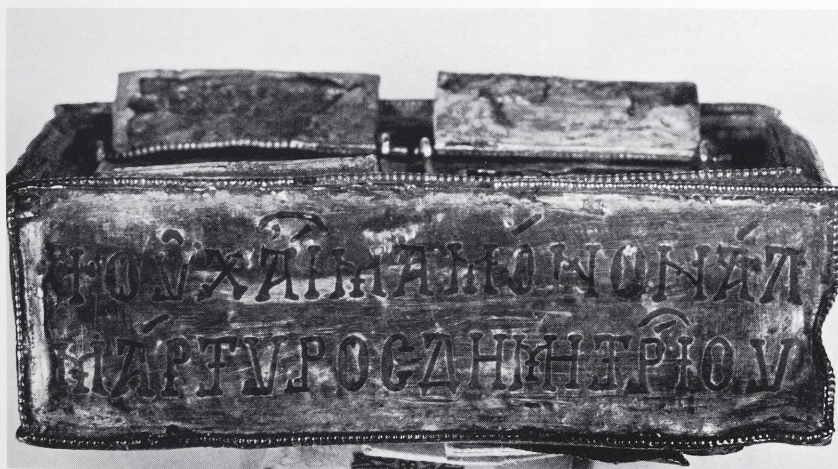 +ΟΥ̓ΧΑἷΜΑΜΌΝΟΝΆΛ
ΜΆΡΤΥΡΟϹΔΗΜΗΤΡΙΟΥ